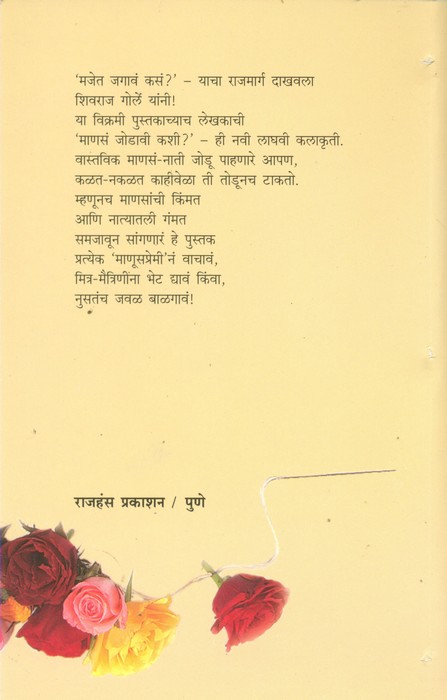 ‘मजेत जगावं कसं?’ – याचा राजमार्ग दाखवला
शिवराज गोर्ले यांनी!
या विक्रमी पुस्तकाच्याच लेखकाची
‘माणसं जोडावी कशी?’ – ही नवी लाघवी कलाकृती.
वास्तविक माणसं-नाती जोडू पाहणारे आपण,
कळत-नकळत काहीवेळा ती तोडूनच टाकतो.
म्हणूनच माणसांची किंमत
आणि नात्यातली गंमत
समजावून सांगणारं हे पुस्तक
प्रत्येक ‘माणूसप्रेमी’नं वाचावं,
मित्र-मैत्रिणींना भेट द्यावं किंवा,
नुसतंच जवळ बाळगावं!
राजहंस प्रकाशन / पुणे